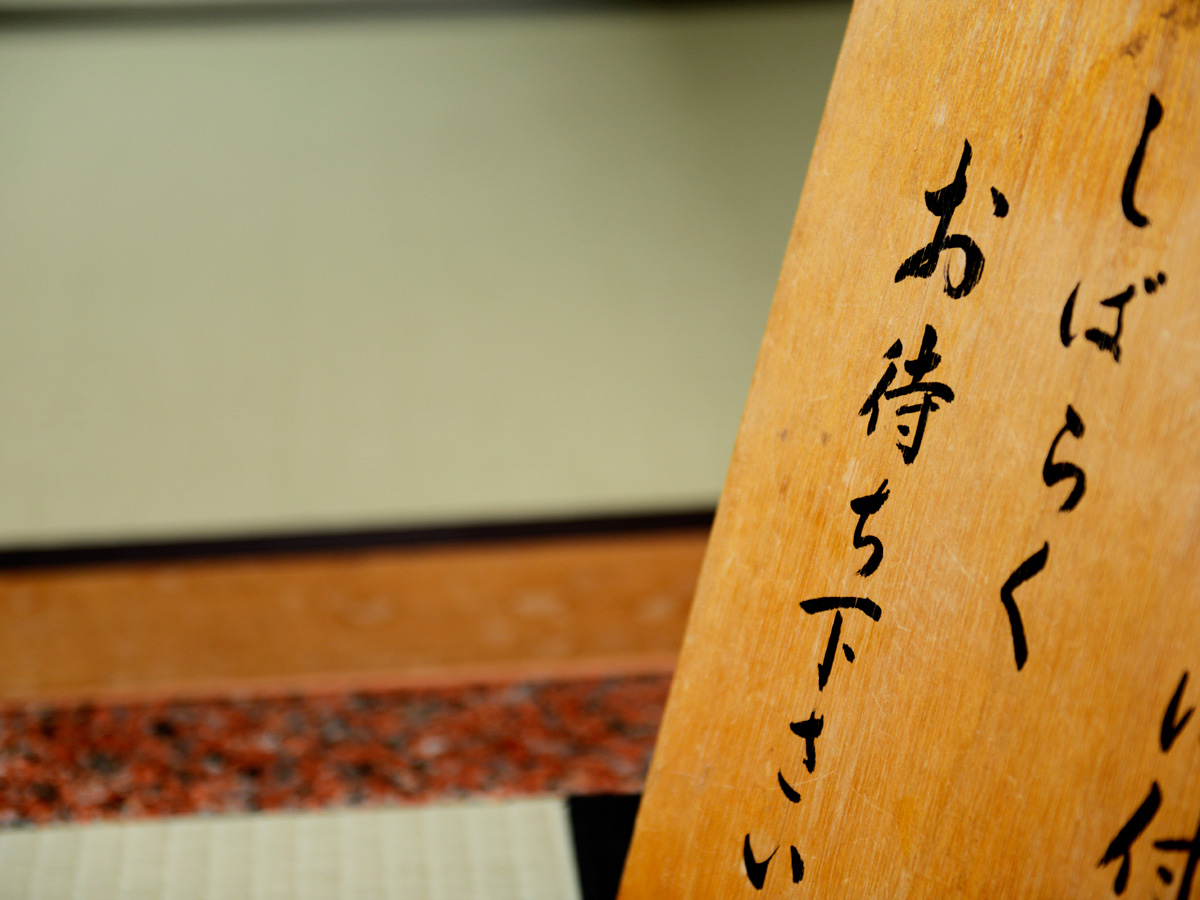 しばらく
お待ち下さい